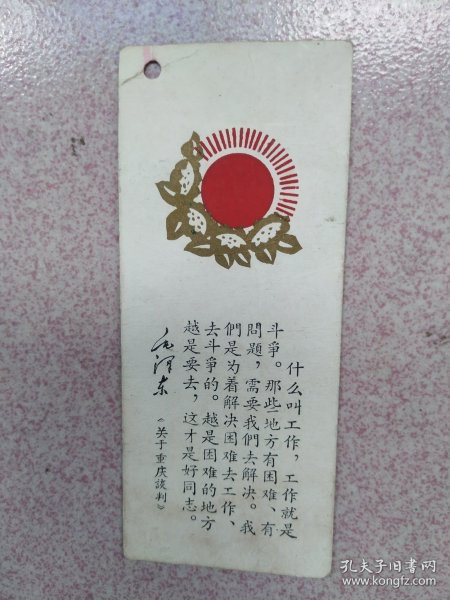 什么叫工作，工作就是
斗爭。那些地方有困难、有
問題，需要我們去解决。我
們是为着解决困难去工作、
去斗爭的。越是困难的地方
越是要去，这才是好同志。
毛澤东
《关于重庆談判》
孔夫子旧书网
www.kongfz.com